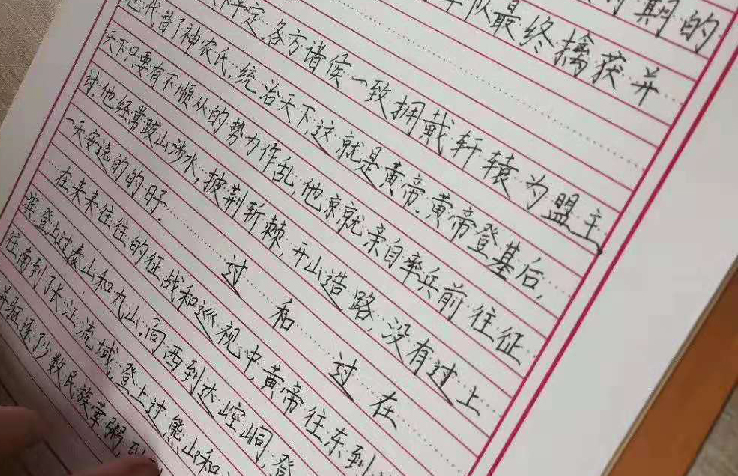 期的
队最终擒获并
平定,各方诸侯一致拥戴轩辕为盟主
代替了神农氏,统治天下这就是黄帝.黄帝登基后,
天下只要有不顺从的势力作乱,他就亲自率兵前往征
他经常跋山涉水,披荆斩棘,开山造路,没有过上
一天安逸的的日子.
过 和 过 在
在来来往往的征战和巡视中,黄帝往东到
登上过泰山和丸山,向西到达崆峒,登
往南到了长江流域,登上过熊山和
少数民族荤粥,